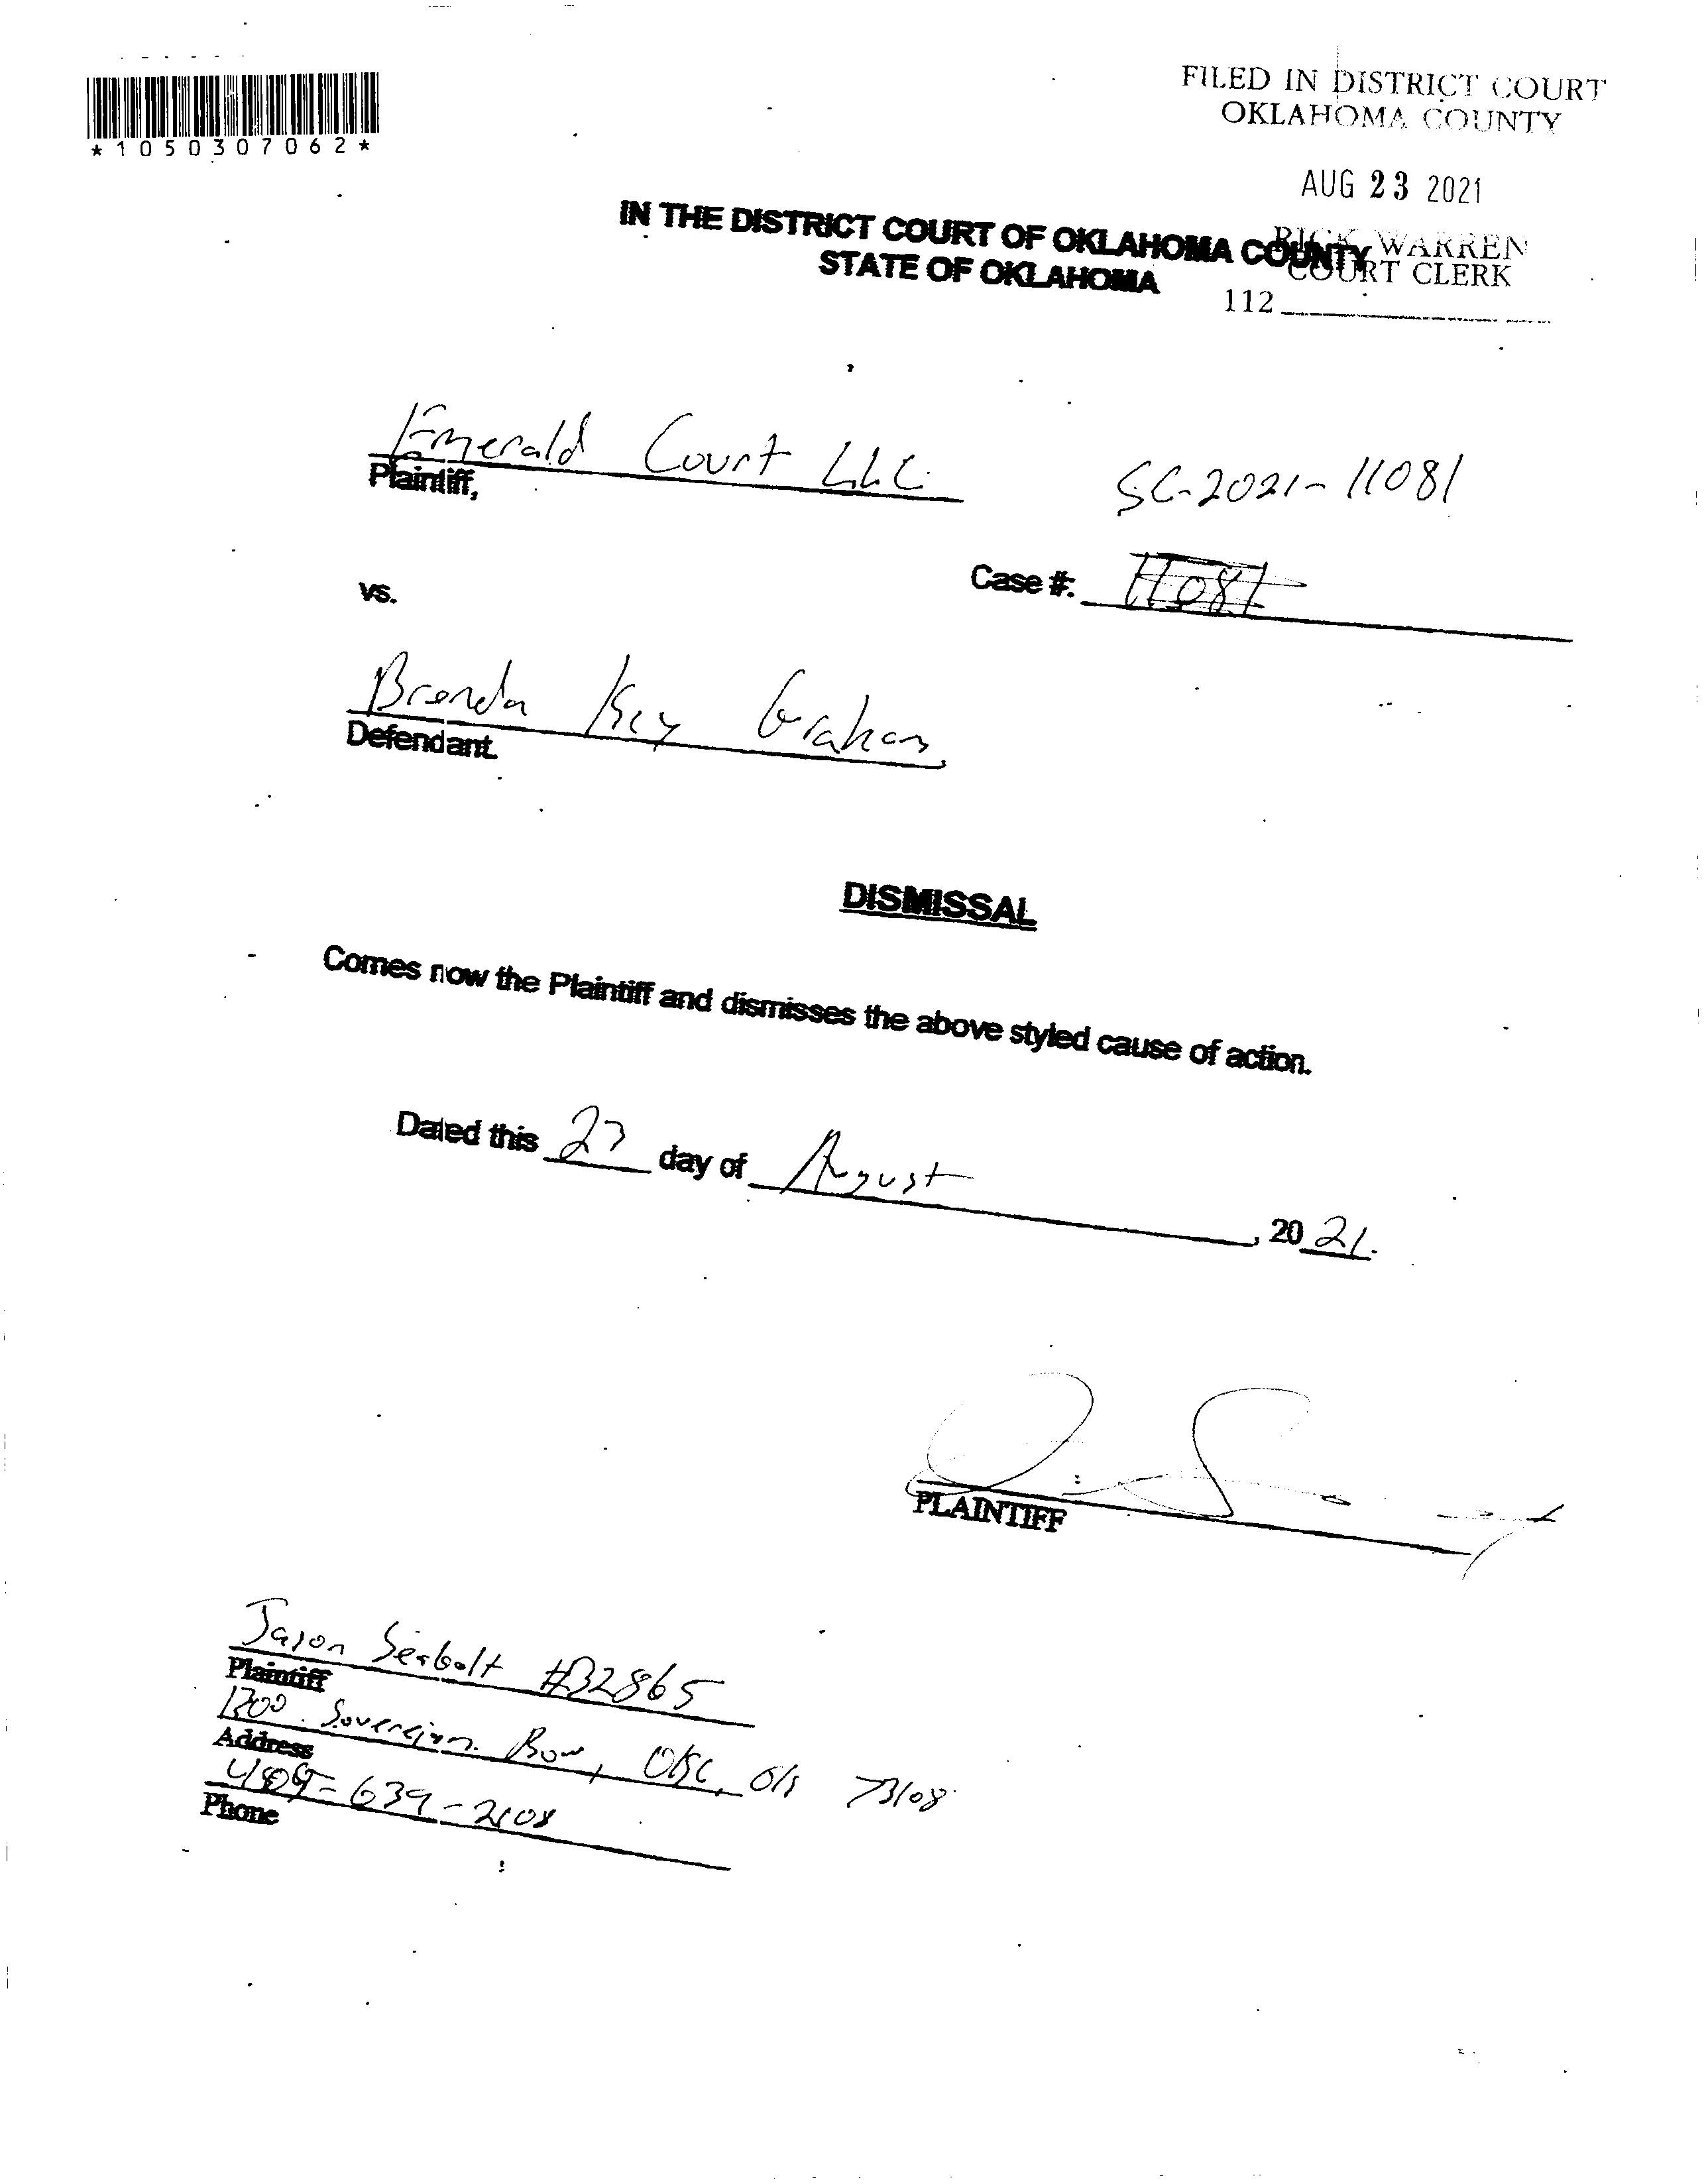 FILED IN DISTRICT COURT
OKLAHOMA COUNTY
*1050307062*
AUG 23 2021
IN THE DISTRICT COURT OF OKLAHOMA COUNTY
STATE OF OKLAHOMA
RICK WARREN
COURT CLERK
112
Emerald Court LLC
Plaintiff,
SC-2021-11081
vs.
Case #: 11081
Brenda Key Graham
Defendant.
DISMISSAL
Comes now the Plaintiff and dismisses the above styled cause of action.
Dated this 23 day of August, 2021.
PLAINTIFF
Jason Seabolt #32865
Plaintiff
1300 Sovereign Row, OKC, Ok 73108
Address
639-2108
Phone